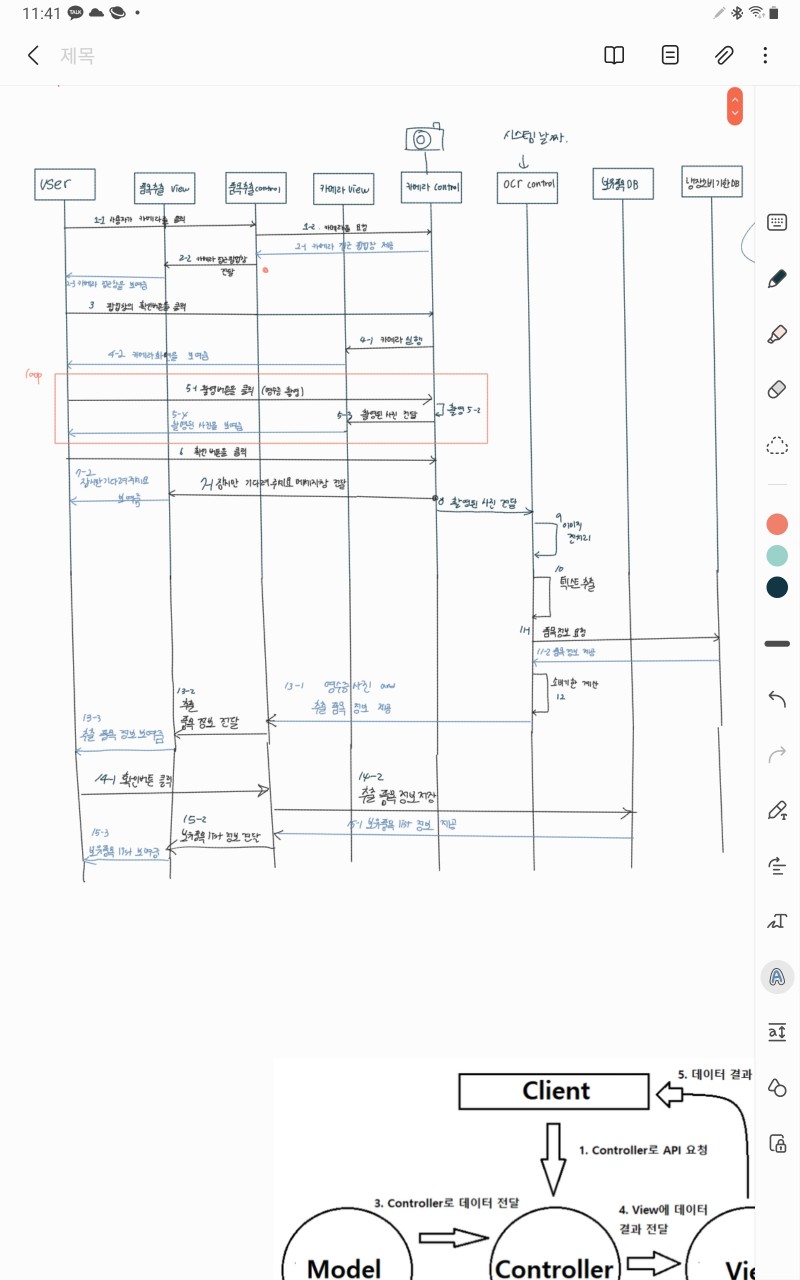 11:41
TALK
제목
시스템 날짜.
USER
품목추출 View
품목추출 control
카메라 View
카메라 control
OCR control
보유품목 DB
1-1 사용자가 카메라를 클릭
1-2. 카메라를 요청
2-1 카메라 접근 팝업창 제공
2-2 카메라 접근팝업창
전달
3 팝업창의 확인버튼을 클릭
4-1 카메라 실행
4-2 카메라 화면을 보여줌
loop
5-1 촬영버튼을 클릭 (영수증 촬영)
촬영 5-2
5-3 촬영된 사진 전달
5-4
촬영된 사진을 보여줌
6 확인 버튼을 클릭
7-2
잠시만 기다려주세요
보여줌
7-1 잠시만 기다려주세요 메세지창 전달
8 촬영된 사진 전달
9 이미지
전처리
10
텍스트 추출
11-1 품목정보 요청
11-2 품목 정보 제공
소비기한 계산
12
13-1 영수증 사진 and
추출 품목 정보 제공
13-2
추출
품목 정보 전달
13-3
추출 품목 정보 보여줌
14-1 확인버튼 클릭
14-2
추출 품목 정보저장
15-1 보유품목 list 정보 제공
15-2
보유품목 list 정보 전달
15-3
보유품목 list 보여줌
Client
5. 데이터 결과
1. Controller로 API 요청
3. Controller로 데이터 전달
4. View에 데이터
결과 전달
Model
Controller
Vie